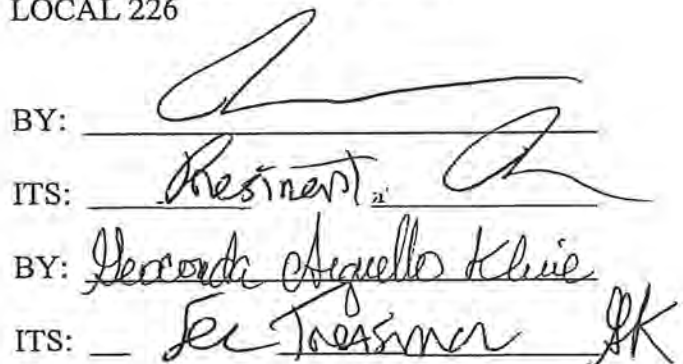 LOCAL 226
BY:
ITS: President
BY: Geoconda Arguello Kline
ITS: Sec Treasurer GK